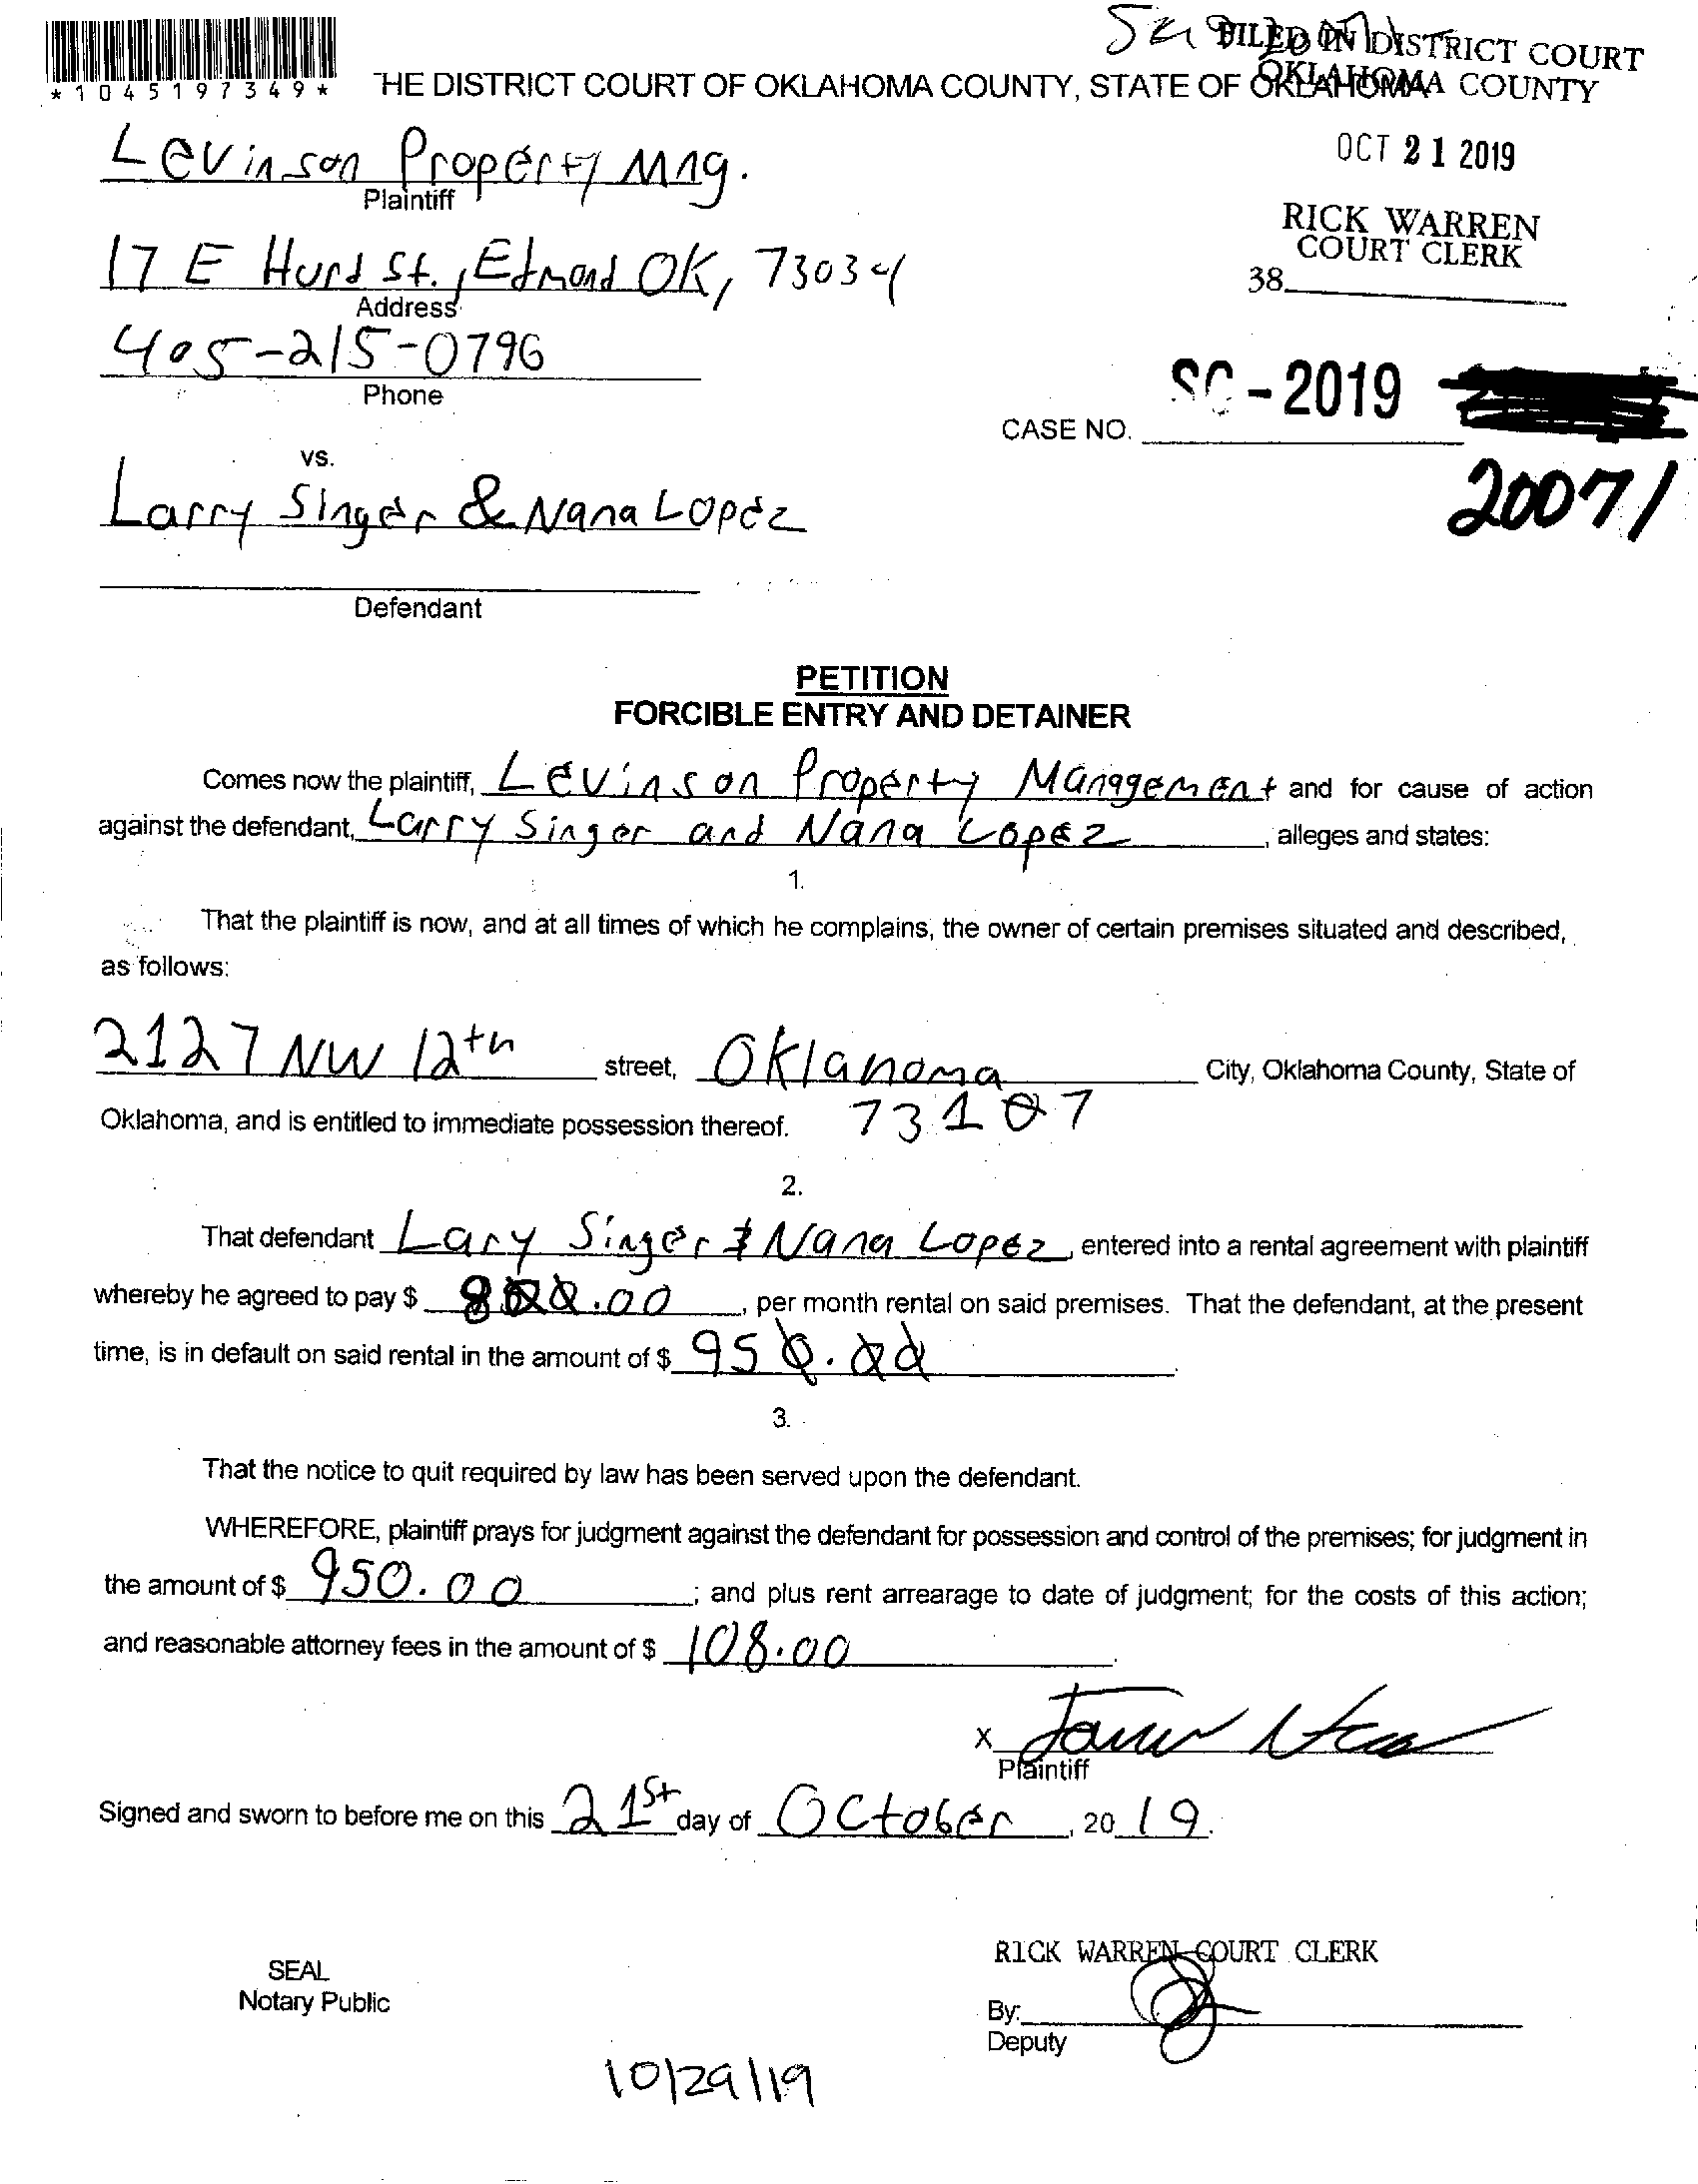 FILED IN DISTRICT COURT
OKLAHOMA COUNTY
*1045197349*
THE DISTRICT COURT OF OKLAHOMA COUNTY, STATE OF OKLAHOMA
OCT 21 2019
RICK WARREN
COURT CLERK
38
Levinson Property Mng.
Plaintiff
17 E Hurd St., Edmond OK, 73034
Address
405-215-0796
Phone
CASE NO. SC - 2019
20071
vs.
Larry Singer & Nana Lopez
Defendant
PETITION
FORCIBLE ENTRY AND DETAINER
Comes now the plaintiff, Levinson Property Management and for cause of action
against the defendant, Larry Singer and Nana Lopez, alleges and states:
1.
That the plaintiff is now, and at all times of which he complains, the owner of certain premises situated and described,
as follows:
2127 NW 12th street, Oklahoma City, Oklahoma County, State of
Oklahoma, and is entitled to immediate possession thereof. 73107
2.
That defendant Lary Singer & Nana Lopez, entered into a rental agreement with plaintiff
whereby he agreed to pay $ 800.00, per month rental on said premises. That the defendant, at the present
time, is in default on said rental in the amount of $ 950.00.
3.
That the notice to quit required by law has been served upon the defendant.
WHEREFORE, plaintiff prays for judgment against the defendant for possession and control of the premises; for judgment in
the amount of $ 950.00; and plus rent arrearage to date of judgment; for the costs of this action;
and reasonable attorney fees in the amount of $ 108.00.
X
Plaintiff
Signed and sworn to before me on this 21st day of October, 2019.
RICK WARREN COURT CLERK
SEAL
Notary Public
By:
Deputy
10/29/19